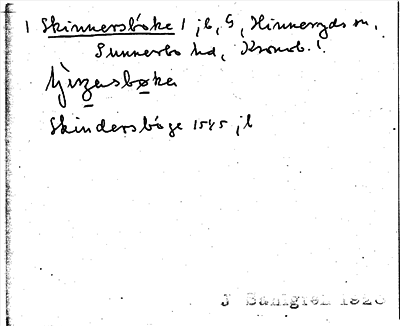 1 Skinnersböke 1, jb, S, Hinneryds sn,
Sunnerbo hd, Kronob. l.
Skindersböge 1545 jb
J Sahlgren 1926